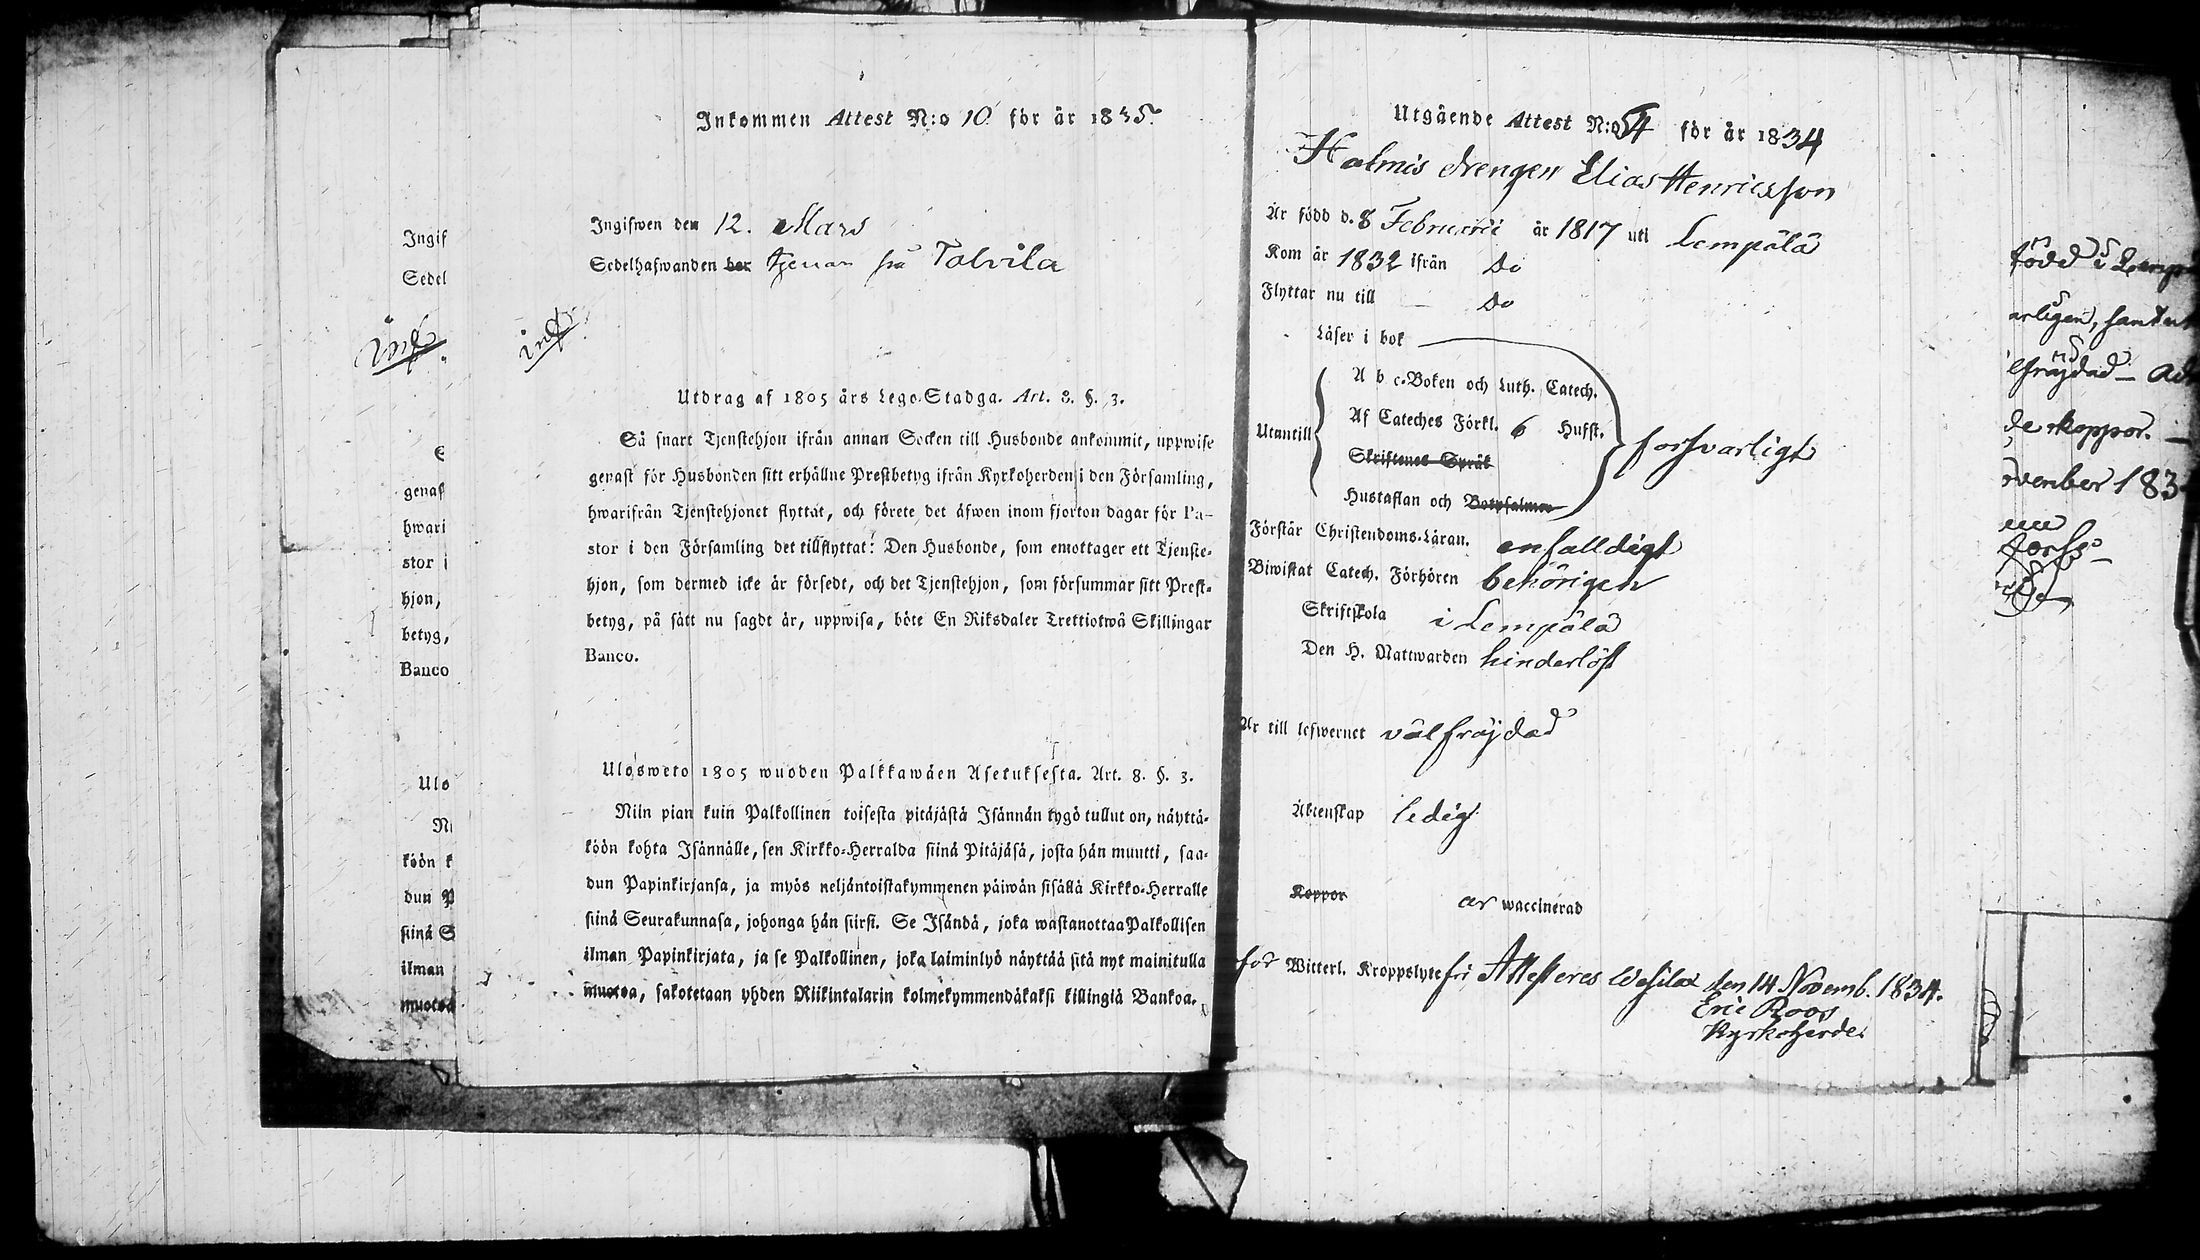 Inkommen Attest N:o 10 för är 1835.
Ingifwen den 12. Mars
Sedelhafwanden bor tjenar på Tolvila
inf.
Utdrag af 1805 års Lego-Stadga. Art. 8. §. 3.
Så snart Tjenstehjon ifrån annan Socken till Husbonde ankommit, uppwise
genast för Husbonden sitt erhållne Prestbetyg ifrån Kyrkoherden i den Församling,
hwarifrån Tjenstehjonet flyttat, och förete det äfwen inom fjorton dagar för Pa-
stor i den Församling det tillflyttat: Den Husbonde, som emottager ett Tjenste-
hjon, som dermed icke är försedt, och det Tjenstehjon, som försummar sitt Prest-
betyg, på sätt nu sagdt är, uppwisa, böte En Riksdaler Trettiotwå Skillingar
Banco.
Ulosweto 1805 wuoden Palkkawäen Asetuksesta. Art. 8. §. 3.
Niin pian kuin Palkollinen toisesta pitäjästä Isännän tygö tullut on, näyttä-
köön kohta Isännälle, sen Kirkko-Herralda siinä Pitäjäsä, josta hän muutti, saa-
dun Papinkirjansa, ja myös neljäntoistakymmenen päiwän sisällä Kirkko-Herralle
siinä Seurakunnasa, johonga hän siirsi. Se Isändä, joka wastanottaa Palkollisen
ilman Papinkirjata, ja se Palkollinen, joka laiminlyö näyttää sitä nyt mainitulla
muotoa, sakotetaan yhden Riikintalarin kolmekymmendäkaksi killingiä Bankoa.
Ingif
Sedel
inf.
genas
hwari
stor i
hjon,
betyg,
Banco
Ulo
Ni
köön k
dun P
siinä S
ilman
muotoa
Utgående Attest N:o 54 för år 1834
Halmis drengen Elias Henricsson
Är född d. 8 Februarii år 1817 uti Lempälä
Kom år 1832 ifrån Do
Flyttar nu till Do
Läser i bok
A b c-Boken och Luth. Catech.
Af Cateches Förkl. 6 Hufst.
Utantill
Skriftenes Språk
försvarligt
Hustaflan och Botpsalmen
Förstår Christendoms-Läran. enfalldigt
Biwistat Catech. Förhören behörigen
Skriftskola i Lempälä
Den H. Nattwarden hinderlöst
Är till lefwernet välfräjdad
Äktenskap ledig
Koppor är waccinerad
för Witterl. Kroppslyte fri Attesteras Wesilax den 14 Novemb. 1834.
Eric Roos
Kyrkoherde.
född i Lemp
arligen, samt
älfräjdad
de koppor.
ovember 183